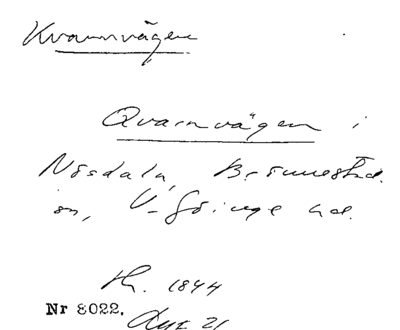 Kvarnvägen
Qvarnvägen i
Nösdala, Brönnestad.
sn, V. Göinge hd.
1844
Nr 8022.
Akt 21